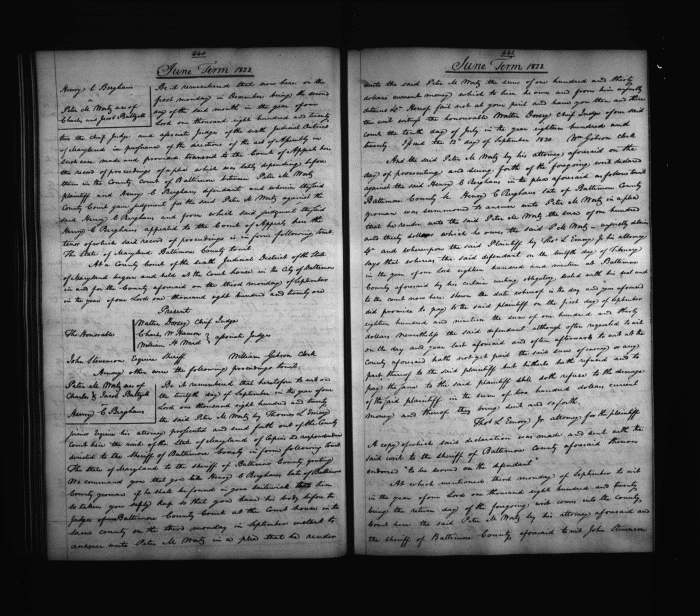 440
June Term 1822
Henry C Bergham
a
Peter M Wortz use of
Charles and Jacob Baltzell
Be it remembered that now here on the
first monday in December being the second
day of the said month in the year of our
Lord one thousand eight hundred and twenty
two the chief Judge and associate Judges of the sixth Judicial District
of Maryland in pursuance of the directions of the act of Assembly in
such case made and provided transmit to the Court of Appeals here
the record of proceedings of a plea which was lately depending before
them in the County Court of Baltimore between Peter M Wortz
plaintiff and Henry C Bergham defendant and wherein the said
County Court gave judgment for the said Peter M Wortz against the
said Henry C Bergham and from which said judgment the said
Henry C Bergham appealed to the Court of Appeals here the
tenor of which said record of proceedings is in form following towit
The State of Maryland Baltimore County towit
At a County Court of the sixth Judicial District of the State
of Maryland begun and held at the Court house in the City of Baltimore
in and for the County aforesaid on the third monday of September
in the year of our Lord one thousand eight hundred and twenty one
Present
The Honorable
Walter Dorsey Chief Judge
Charles W Hanson
William H Ward
associate Judges
John Stevenson Esquire Sheriff William Gibson Clerk
Among other were the following proceedings towit
Peter M Wortz use of
Charles & Jacob Baltzell
a
Henry C Bergham
Be it remembered that heretofore to wit on
the twelfth day of September in the year of our
Lord one thousand eight hundred and twenty
the said Peter M Wortz by Thomas L Emory
junior Esquire his attorney prosecuted and sued forth out of the County
Court here the writ of the State of Maryland of capias ad respondendum
directed to the Sheriff of Baltimore County in form following towit
The State of Maryland to the sheriff of Baltimore County greeting
We command you that you take Henry C Bergham late of Baltimore
County yeoman if he shall be found in your bailiwick him
so taken you safely keep so that you have his body before the
Judges of our Baltimore County Court at the Court house in the
same county on the third monday in September instant to
answer unto Peter M Wortz in a plea that he render
441
June Term 1822
unto the said Peter M Wortz the sum of one hundred and thirty
dollars current money which to him he owes and from him unjustly
detains &c. Hereof fail not at your peril and have you then and there
this writ witness the honourable Walter Dorsey Chief Judge of our said
court the tenth day of July in the year eighteen hundred and
twenty. Issued the 12th day of September 1820. Wm Gibson Clerk
And the said Peter M Wortz by his attorney aforesaid on the
day of prosecuting and suing forth of the foregoing writ declared
against the said Henry C Bergham in the plea aforesaid as follows towit
Baltimore County Sc. Henry C Bergham late of Baltimore County
yeoman was summoned to answer unto Peter M Wortz in a plea
that he render unto the said Peter M Wortz the sum of one hundred
and thirty dollars which he owes the said P M Wortz unjustly detains
&c and whereupon the said Plaintiff by Thos L Emory Jr his attorney
says that whereas the said defendant on the twelfth day of February
in the year of our Lord eighteen hundred and nineteen at Baltimore
County aforesaid by his certain writing obligatory sealed with his seal and
to the court now here shown the date whereof is the day and year aforesaid
did promise to pay to the said plaintiff on the first day of September
eighteen hundred and nineteen the sum of one hundred and thirty
dollars Nevertheless the said defendant although often requested to wit
on the day and year last aforesaid and often afterwards to wit at the
County aforesaid hath not yet paid the said sum of money or any
part thereof to the said plaintiff but hitherto hath refused and to
pay the same to the said plaintiff still doth refuse to the damage
of the said plaintiff in the sum of two hundred dollars current
money and thereof they bring suit and so forth.
Thos L Emory Jr attorney for plaintiff
A copy of which said declaration was made and sent with the
said writ to the sheriff of Baltimore County aforesaid thereon
endorsed "to be served on the defendant"
At which mentioned third monday of September to wit
in the year of our Lord one thousand eight hundred and twenty
being the return day of the foregoing writ comes into the County
Court here the said Peter M Wortz by his attorney aforesaid and
the sheriff of Baltimore County aforesaid to wit John Stevenson